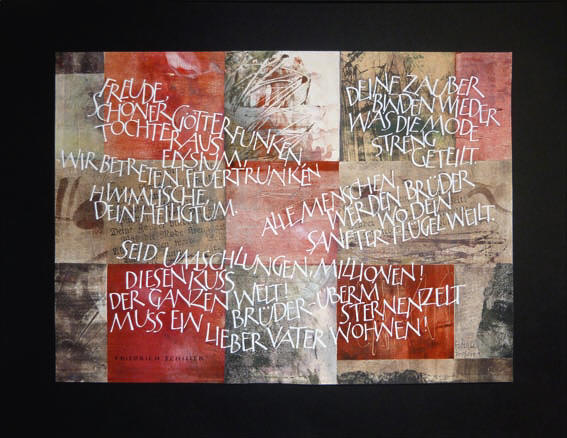 FREUDE,
SCHÖNER GÖTTERFUNKEN,
TOCHTER AUS
ELYSIUM,
WIR BETRETEN FEUERTRUNKEN
HIMMLISCHE,
DEIN HEILIGTUM.
DEINE ZAUBER
BINDEN WIEDER
WAS DIE MODE
STRENG
GETEILT.
ALLE MENSCHEN
WERDEN BRÜDER
WO DEIN
SANFTER FLÜGEL WEILT.
SEID UMSCHLUNGEN, MILLIONEN!
DIESEN KUSS
DER GANZEN WELT!
BRÜDER-ÜBERM
STERNENZELT
MUSS EIN LIEBER VATER WOHNEN!
FRIEDRICH SCHILLER